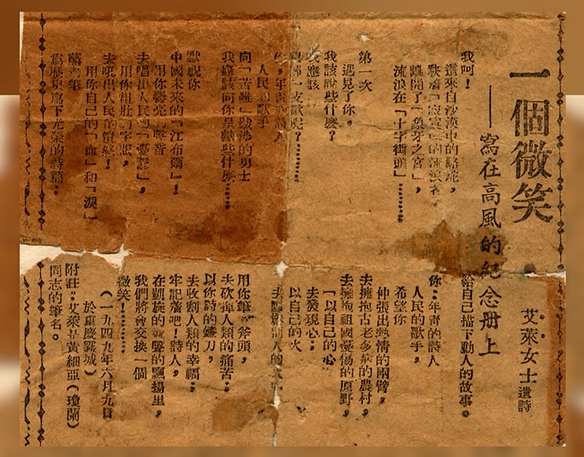 一個微笑
——寫在高風的紀念册上
艾萊女士遺詩
我呵！
還來自沙漠中的駱駝，
「寂寞」的流浪者，
離開了「象牙之宮」，
流浪在「十字街頭」………
第一次
遇見了你。
我該說些什麼？
我應該
一支歌呢？………
你，年青的詩人
人民的歌手
向「苦難」戰鬥的勇士
我應該向你貢獻些什麼………
默祝你
中國未來的「江布爾」！
用你嘹亮的聲音
去唱出人民的「憂鬱」，
用你粗壯的字眼，
去吼出人民的憤怒！
用你自己的「血」和「淚」
蘸着筆
爲歷史寫下光榮的詩篇：
給自己描下動人的故事。
你：年青的詩人
人民的歌手，
希望你
伸張出熱情的兩臂，
去擁抱古老多病的農村，
去擁抱祖國憂傷的原野，
「以自己的心
去發現心：
以自己的火
去點燃別人的火」
用你筆的斧頭，
去砍掉人類的痛苦：
以你詩的鐮刀，
去收割人類的幸福：
牢記着吧！詩人，
在凱旋的歌聲的飄揚里，
我們將會交換一個
微笑！………
（一九四九年六月九日
於重慶霧城）
附註：艾萊是黃細亞（瓊蘭）
同志的筆名。